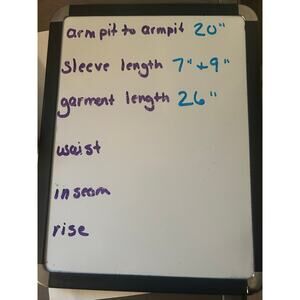 armpit to armpit 20"
sleeve length 7" + 9"
garment length 26"
waist
inseam
rise